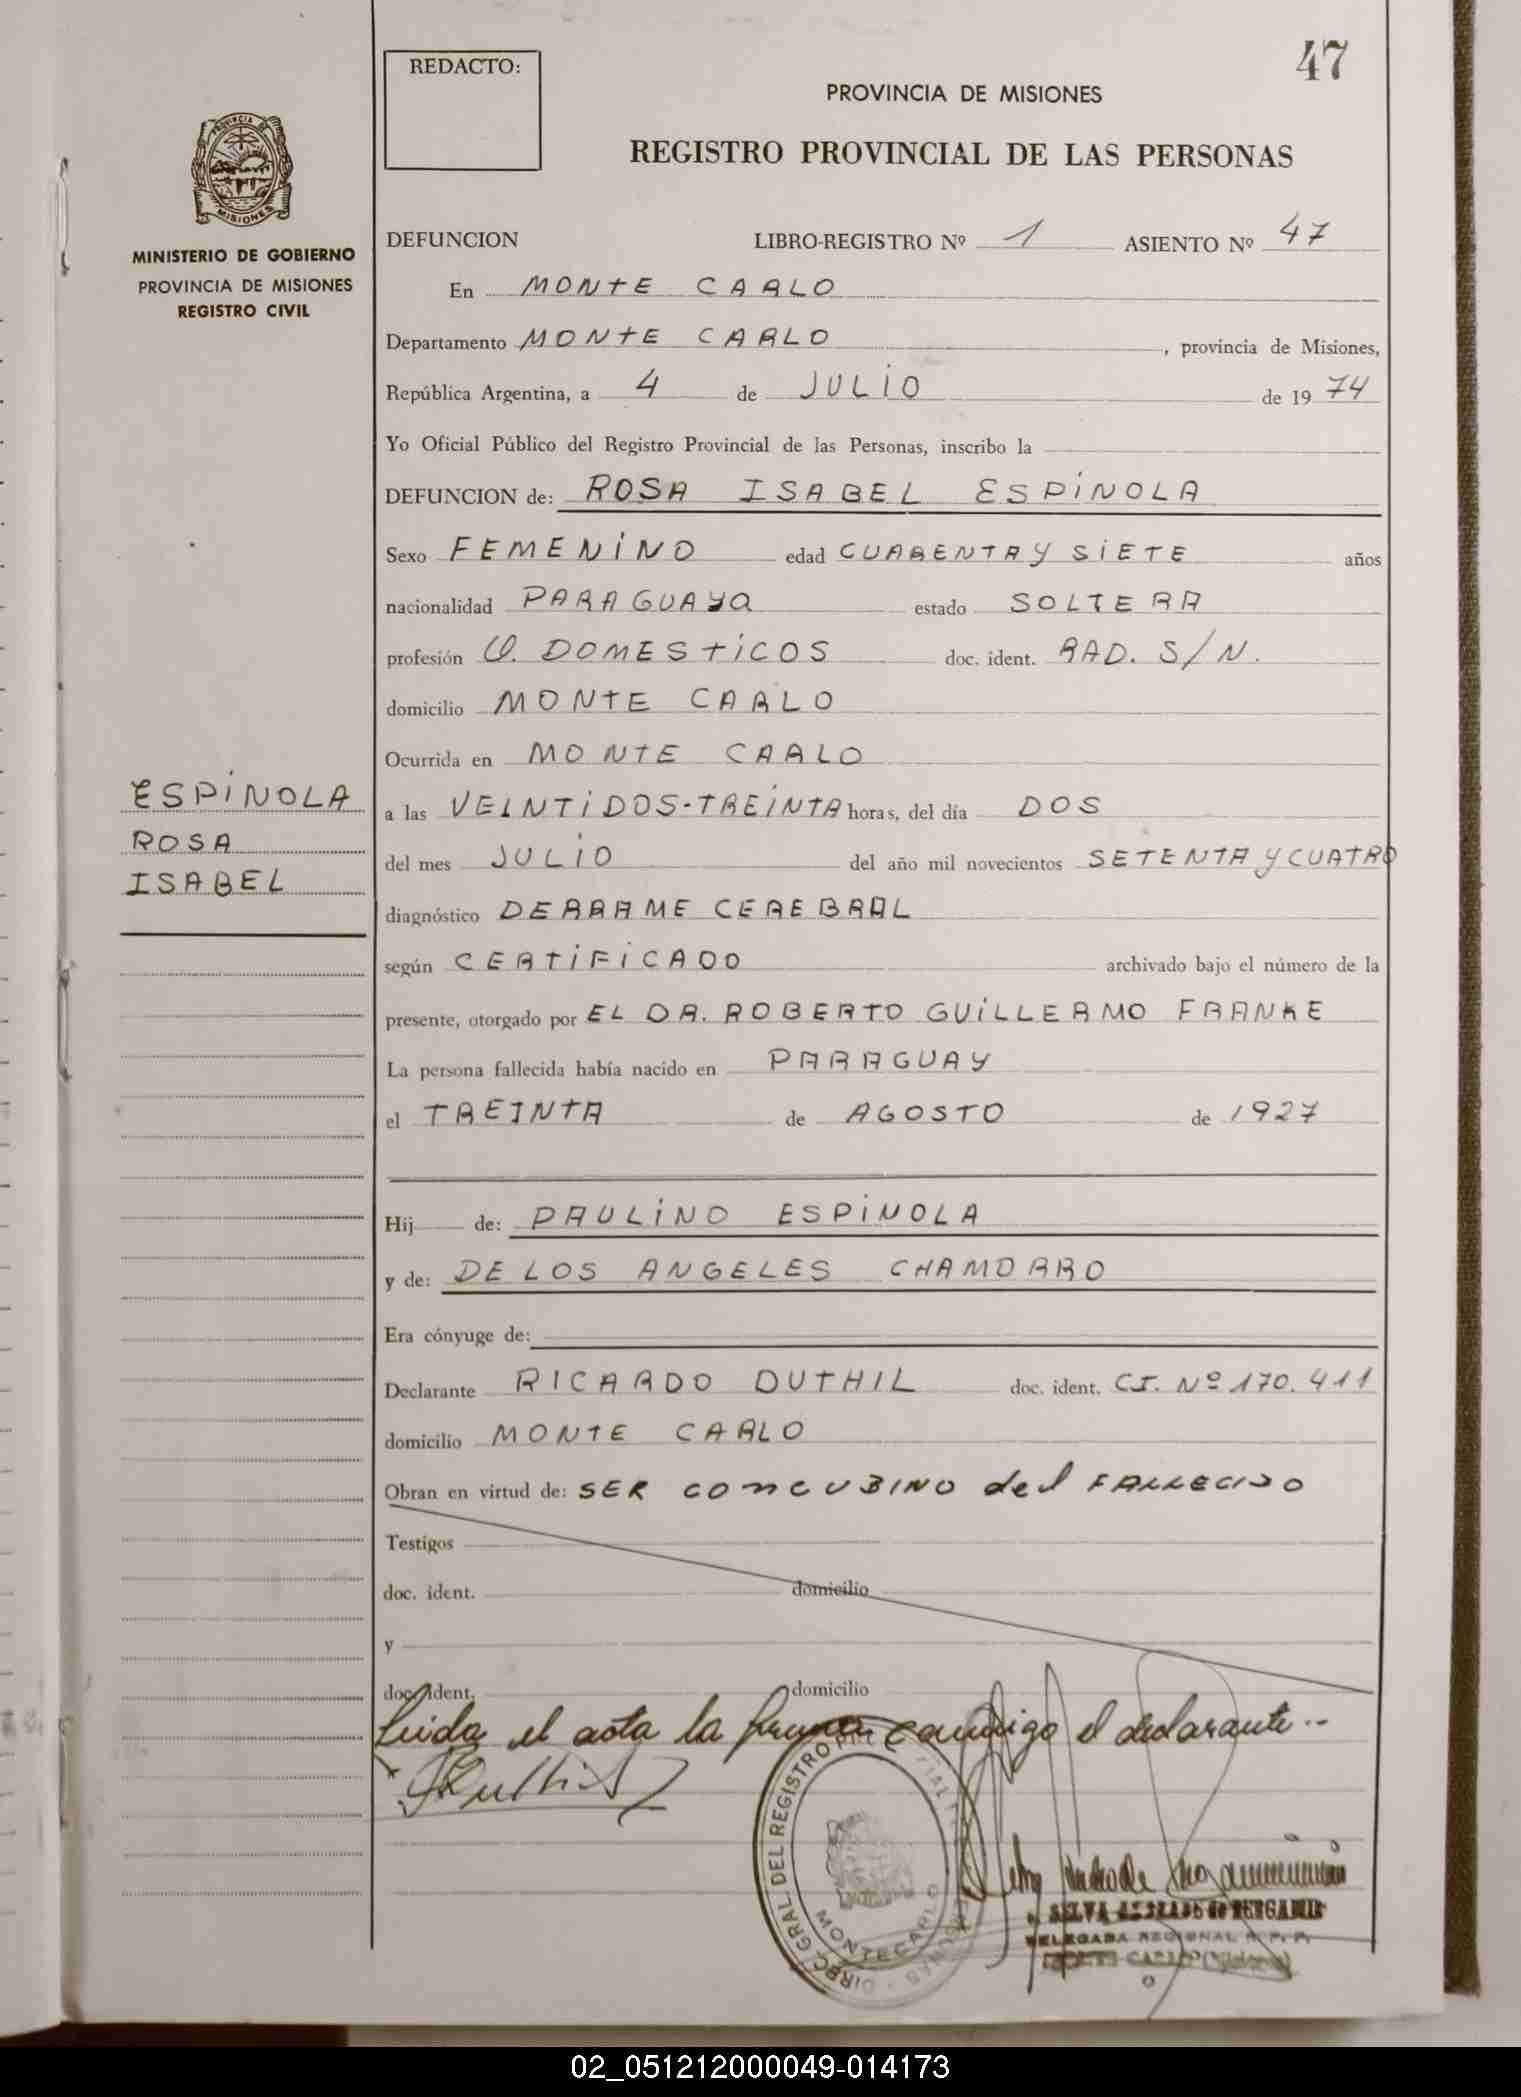 47
REDACTO:
PROVINCIA DE MISIONES
REGISTRO PROVINCIAL DE LAS PERSONAS
PROVINCIA DE
MISIONES
MINISTERIO DE GOBIERNO
PROVINCIA DE MISIONES
REGISTRO CIVIL
DEFUNCION LIBRO-REGISTRO Nº 1 ASIENTO Nº 47
En MONTE CARLO
Departamento MONTE CARLO, provincia de Misiones,
República Argentina, a 4 de JULIO de 1974
Yo Oficial Público del Registro Provincial de las Personas, inscribo la
DEFUNCION de: ROSA ISABEL ESPINOLA
Sexo FEMENINO edad CUARENTA Y SIETE años
nacionalidad PARAGUAYA estado SOLTERA
profesión Q. DOMESTICOS doc. ident. RAD. S/N.
domicilio MONTE CARLO
Ocurrida en MONTE CARLO
ESPINOLA
ROSA
ISABEL
a las VEINTIDOS-TREINTA horas, del día DOS
del mes JULIO del año mil novecientos SETENTA Y CUATRO
diagnóstico DERRAME CEREBRAL
según CERTIFICADO archivado bajo el número de la
presente, otorgado por EL DR. ROBERTO GUILLERMO FRANKE
La persona fallecida había nacido en PARAGUAY
el TREINTA de AGOSTO de 1927
Hij de: PAULINO ESPINOLA
y de: DE LOS ANGELES CHAMORRO
Era cónyuge de:
Declarante RICARDO DUTHIL doc. ident. CI. Nº 170.411
domicilio MONTE CARLO
Obran en virtud de: SER CONCUBINO del FALLECIDO
Testigos
doc. ident. domicilio
y
doc. ident. domicilio
Leida el acta la firma conmigo el declarante..
DIREC. GRAL DEL REGISTRO
MONTECARLO
DELEGADA REGIONAL R. P. P.
02_051212000049-014173